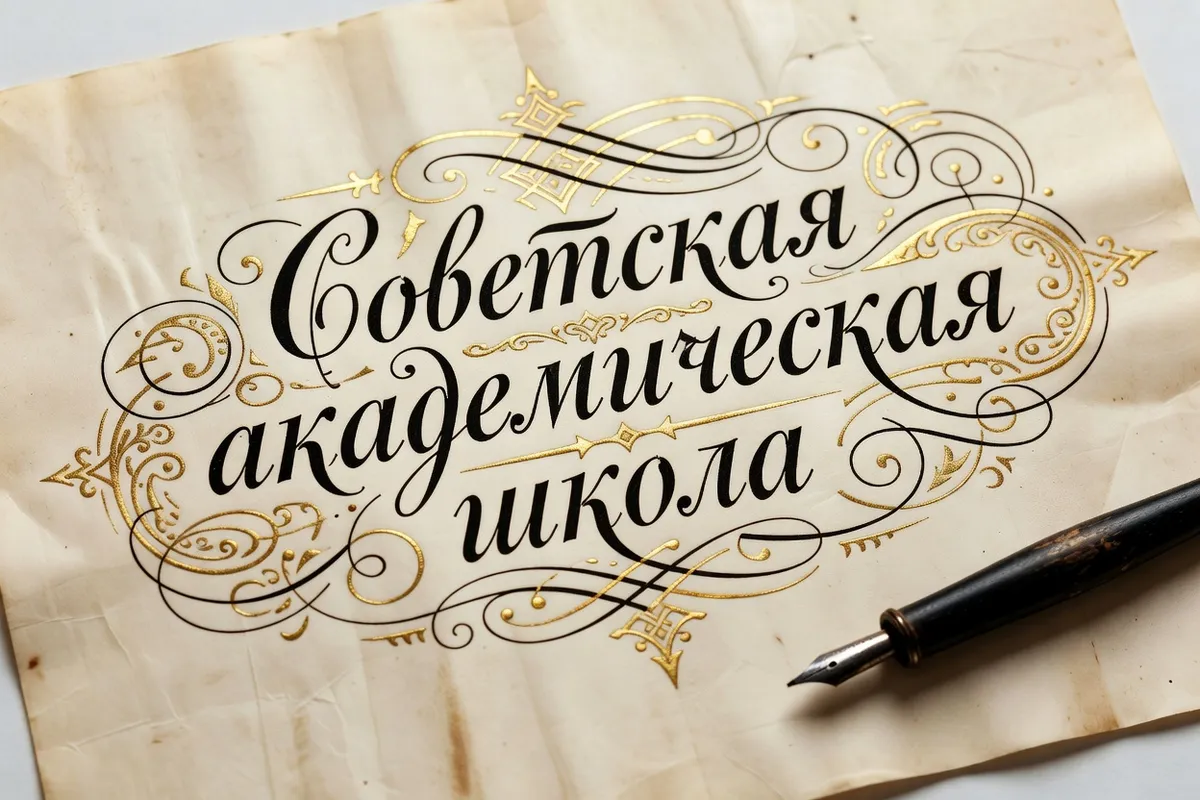 Советская
академическая
школа